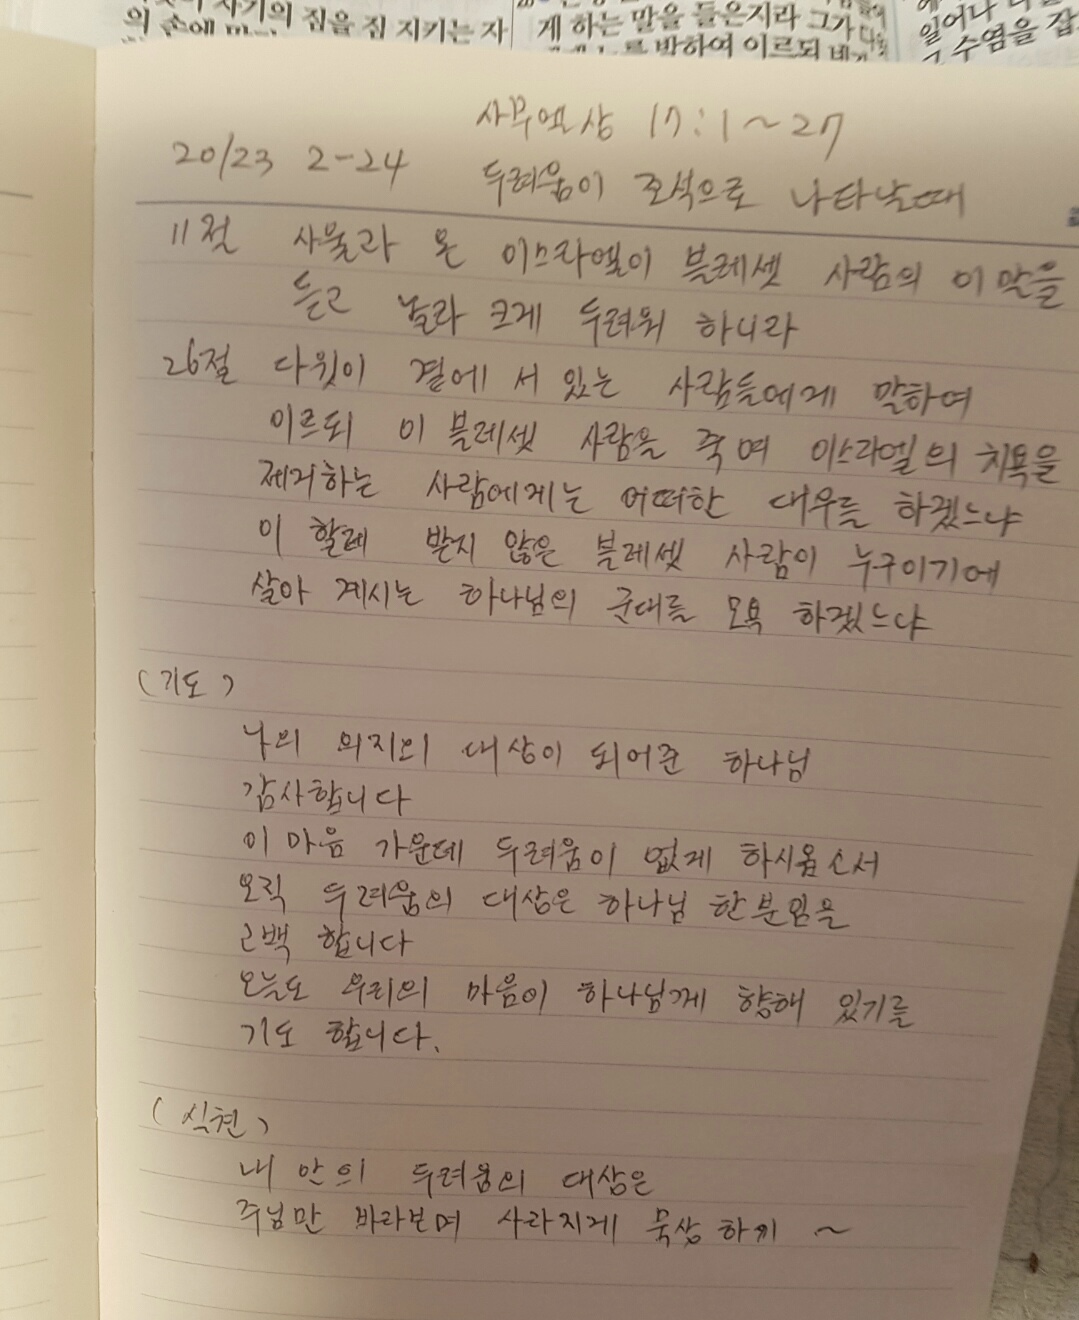 자기의 집을 집 지키는 자
의 손에
게 하는 말을 들은지라 그가 다
를 박하여 이르되 네가
일어나
수염을 잡
사무엘상 17:1~27
20/23 2-24 두려움이 조석으로 나타날때
11절 사울과 온 이스라엘이 블레셋 사람의 이 말을
듣고 놀라 크게 두려워 하니라
26절 다윗이 곁에 서 있는 사람들에게 말하여
이르되 이 블레셋 사람을 죽여 이스라엘의 치욕을
제거하는 사람에게는 어떠한 대우를 하겠느냐
이 할례 받지 않은 블레셋 사람이 누구이기에
살아 계시는 하나님의 군대를 모욕 하겠느냐
(기도)
나의 의지의 대상이 되어준 하나님
감사합니다
이 마음 가운데 두려움이 없게 하시옵소서
오직 두려움의 대상은 하나님 한분임을
고백 합니다
오늘도 우리의 마음이 하나님께 향해 있기를
기도 합니다.
(실천)
내 안의 두려움의 대상은
주님만 바라보며 사라지게 묵상 하기 ~